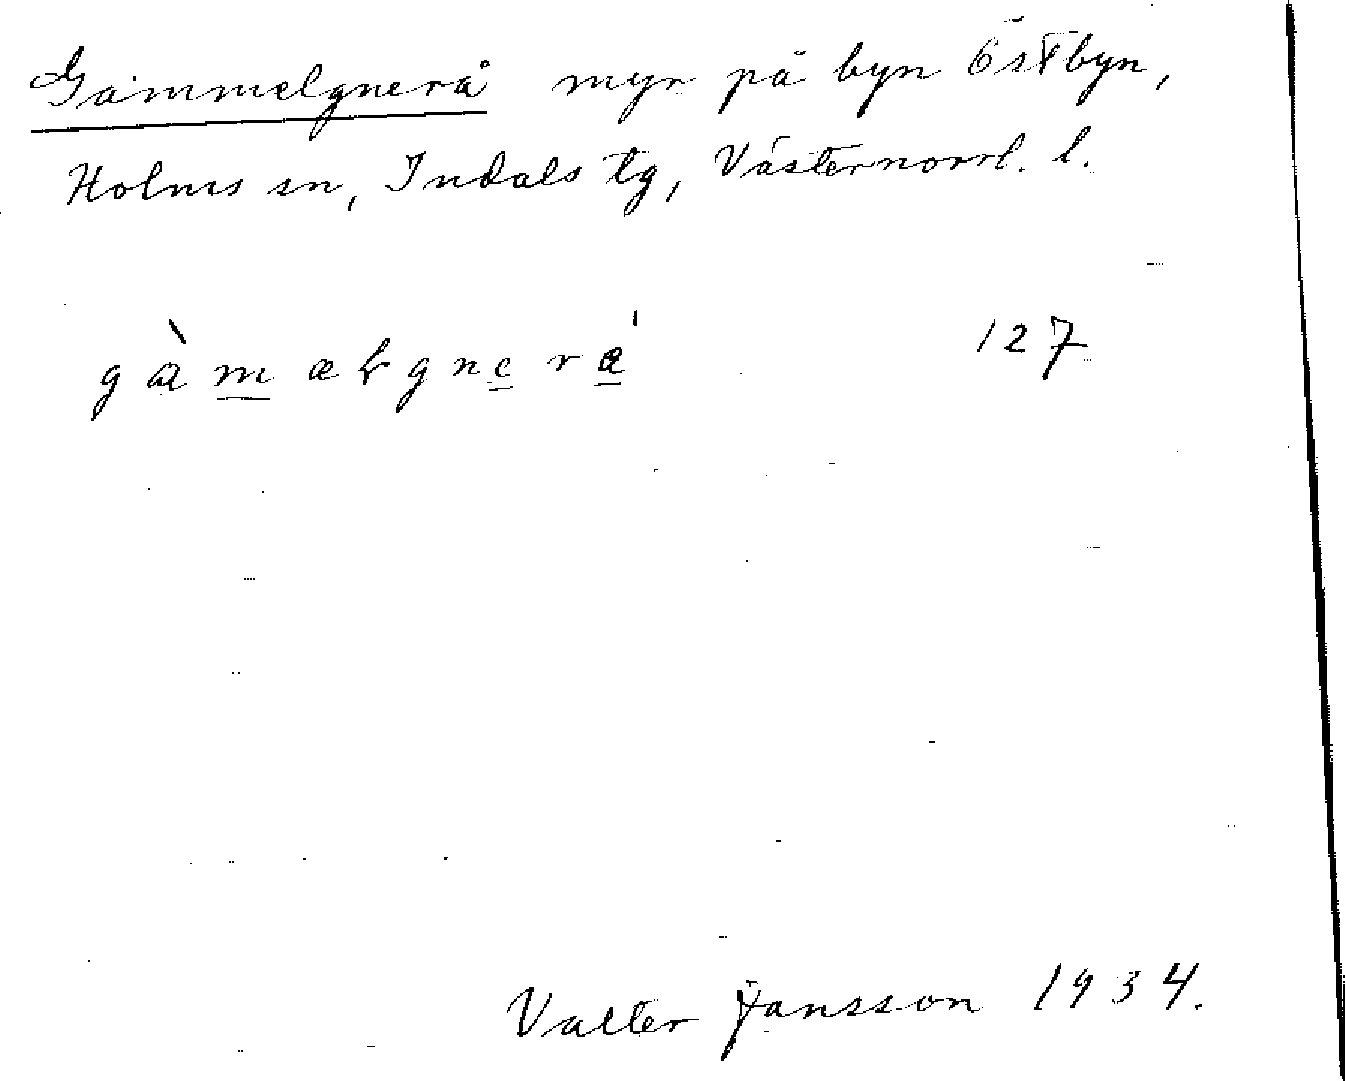 Gammelgnerå myr på byn Östbyn,
Holms sn, Indals tg, Västernorrl. l.
127
Valter Jansson 1934.